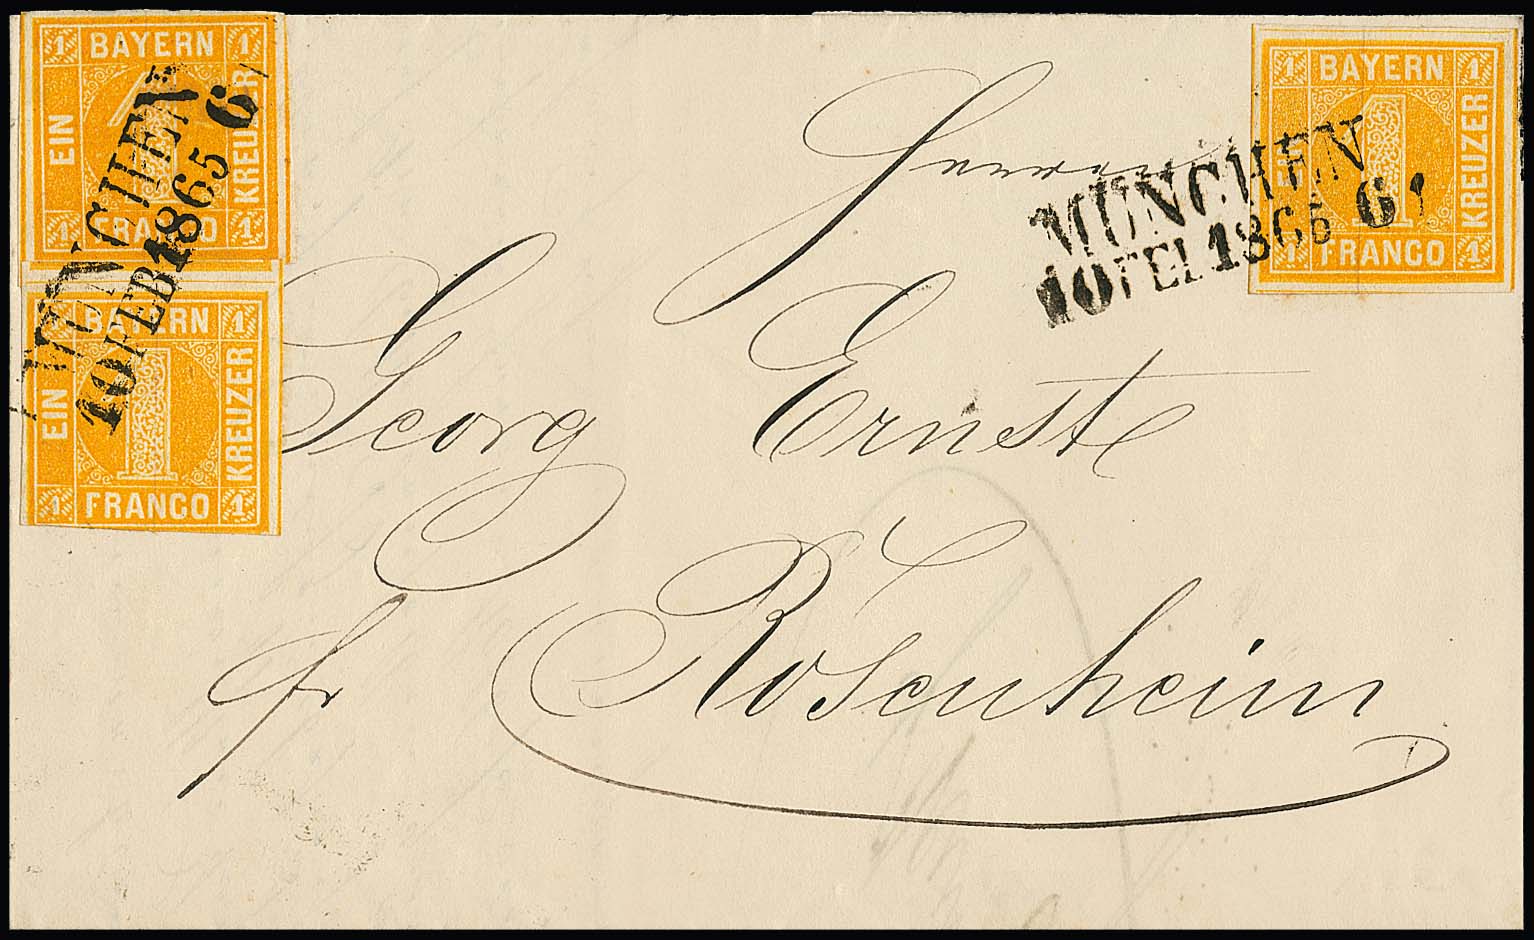 1 BAYERN 1
EIN
1
KREUZER
1 FRANCO 1
MÜNCHEN
10 FEB 1865 6
BAYERN 1
EIN
1
KREUZER
1 FRANCO 1
1 BAYERN 1
EIN
1
KREUZER
1 FRANCO 1
MÜNCHEN
10 FEB 1865 6
Herrn
Georg Ernst
fr Rosenheim